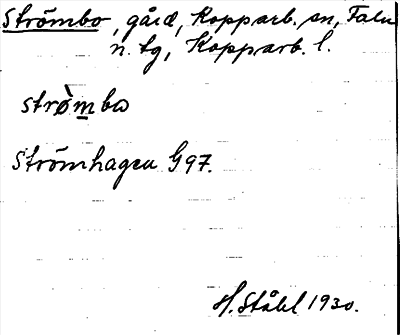 Strömbo, gård, Kopparb. sn, Falu
n. tg, Kopparb. l.
strø̀mbω
Strömhagen G97.
H. Ståhl 1930.